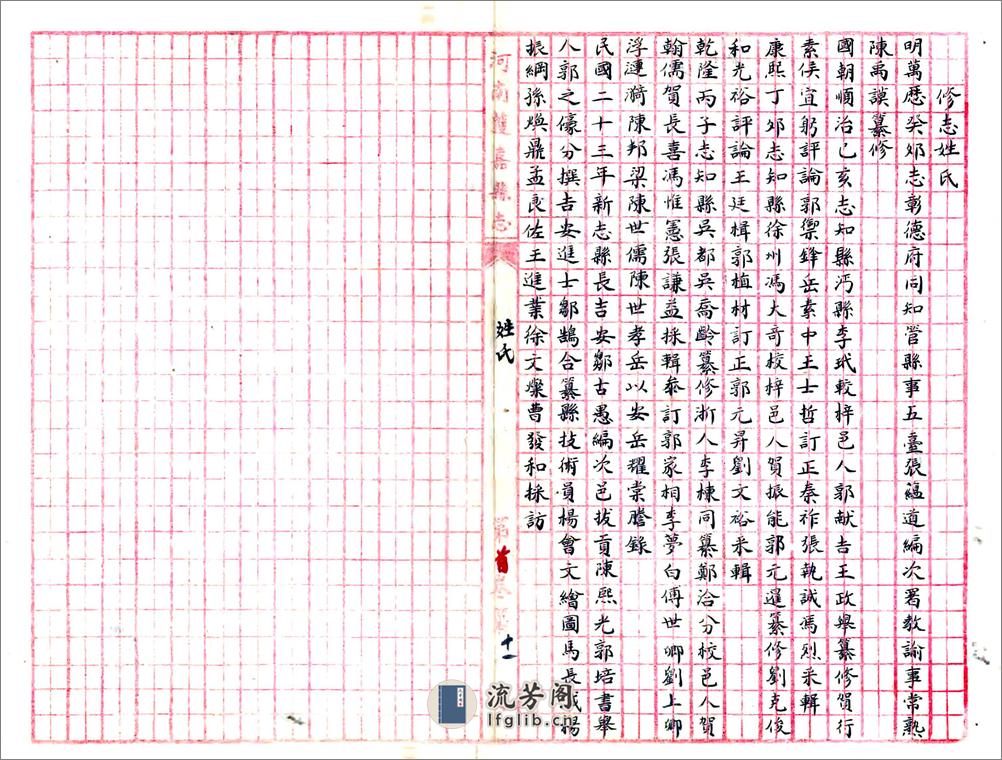 修志姓氏
明萬厯癸夘志彰德府同知管縣事五臺張蘊道編次署教諭事常熟
陳禹謨纂修
國朝順治己亥志知縣沔縣李玳較梓邑人郭献吉王政舉纂修賀行
素侯宜躬評論郭禦鋒岳素中王士哲訂正秦祚張執誠馮烈采輯
康熙丁夘志知縣徐州馮大奇校梓邑人賀振能郭元暹纂修劉克俊
和光裕評論王廷楫郭植材訂正郭元昇劉文裕采輯
乾隆丙子志知縣吳都吳喬齡纂修浙人李棟同纂鄭洽分校邑人賀
翰儒賀長喜馮惟憲張謙益採輯叅訂郭家相李夢白傅世卿劉上卿
浮漣漪陳邦梁陳世儒陳世孝岳以安岳耀棠謄錄
民國二十三年新志縣長吉安鄒古愚編次邑拔貢陳熙光郭培書舉
人郭之僚分撰吉安進士鄒鵠合纂縣技術員楊會文繪圖馬長楊
振綱孫煥鼎孟良佐王進業徐文燦曹發和採訪
河南獲嘉縣志
姓氏
首
十一
流芳阁
lfglib.cn